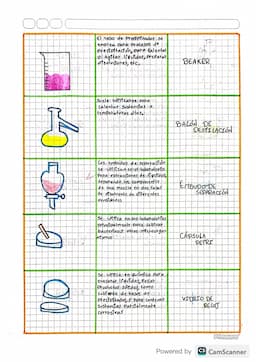 El vaso de precipitados, se
emplea para procesos de
precipitación, para calentar
o agitar líquidos, preparar
disoluciones, etc.
BEAKER
Suele utilizarse para
calentar sustancias a
temperaturas altas.
BALÓN DE
DESTILACIÓN
Los embudos de separación
se utilizan en el laboratorio
para extracciones de líquidos,
separando los componentes
de una mezcla
de diferentes
EMBUDO DE
SEPARACIÓN
Se utiliza en los laboratorios
principalmente para cultivar
bacterias u otros microorganismos
CÁPSULA
PETRI
Se utiliza en química para
evaporar líquidos, pesar
productos sólidos, como
cubierta de vasos de
precipitados, y para contener
sustancias parcialmente
corrosivas
VIDRIO DE
RELOJ
Powered by CS CamScanner